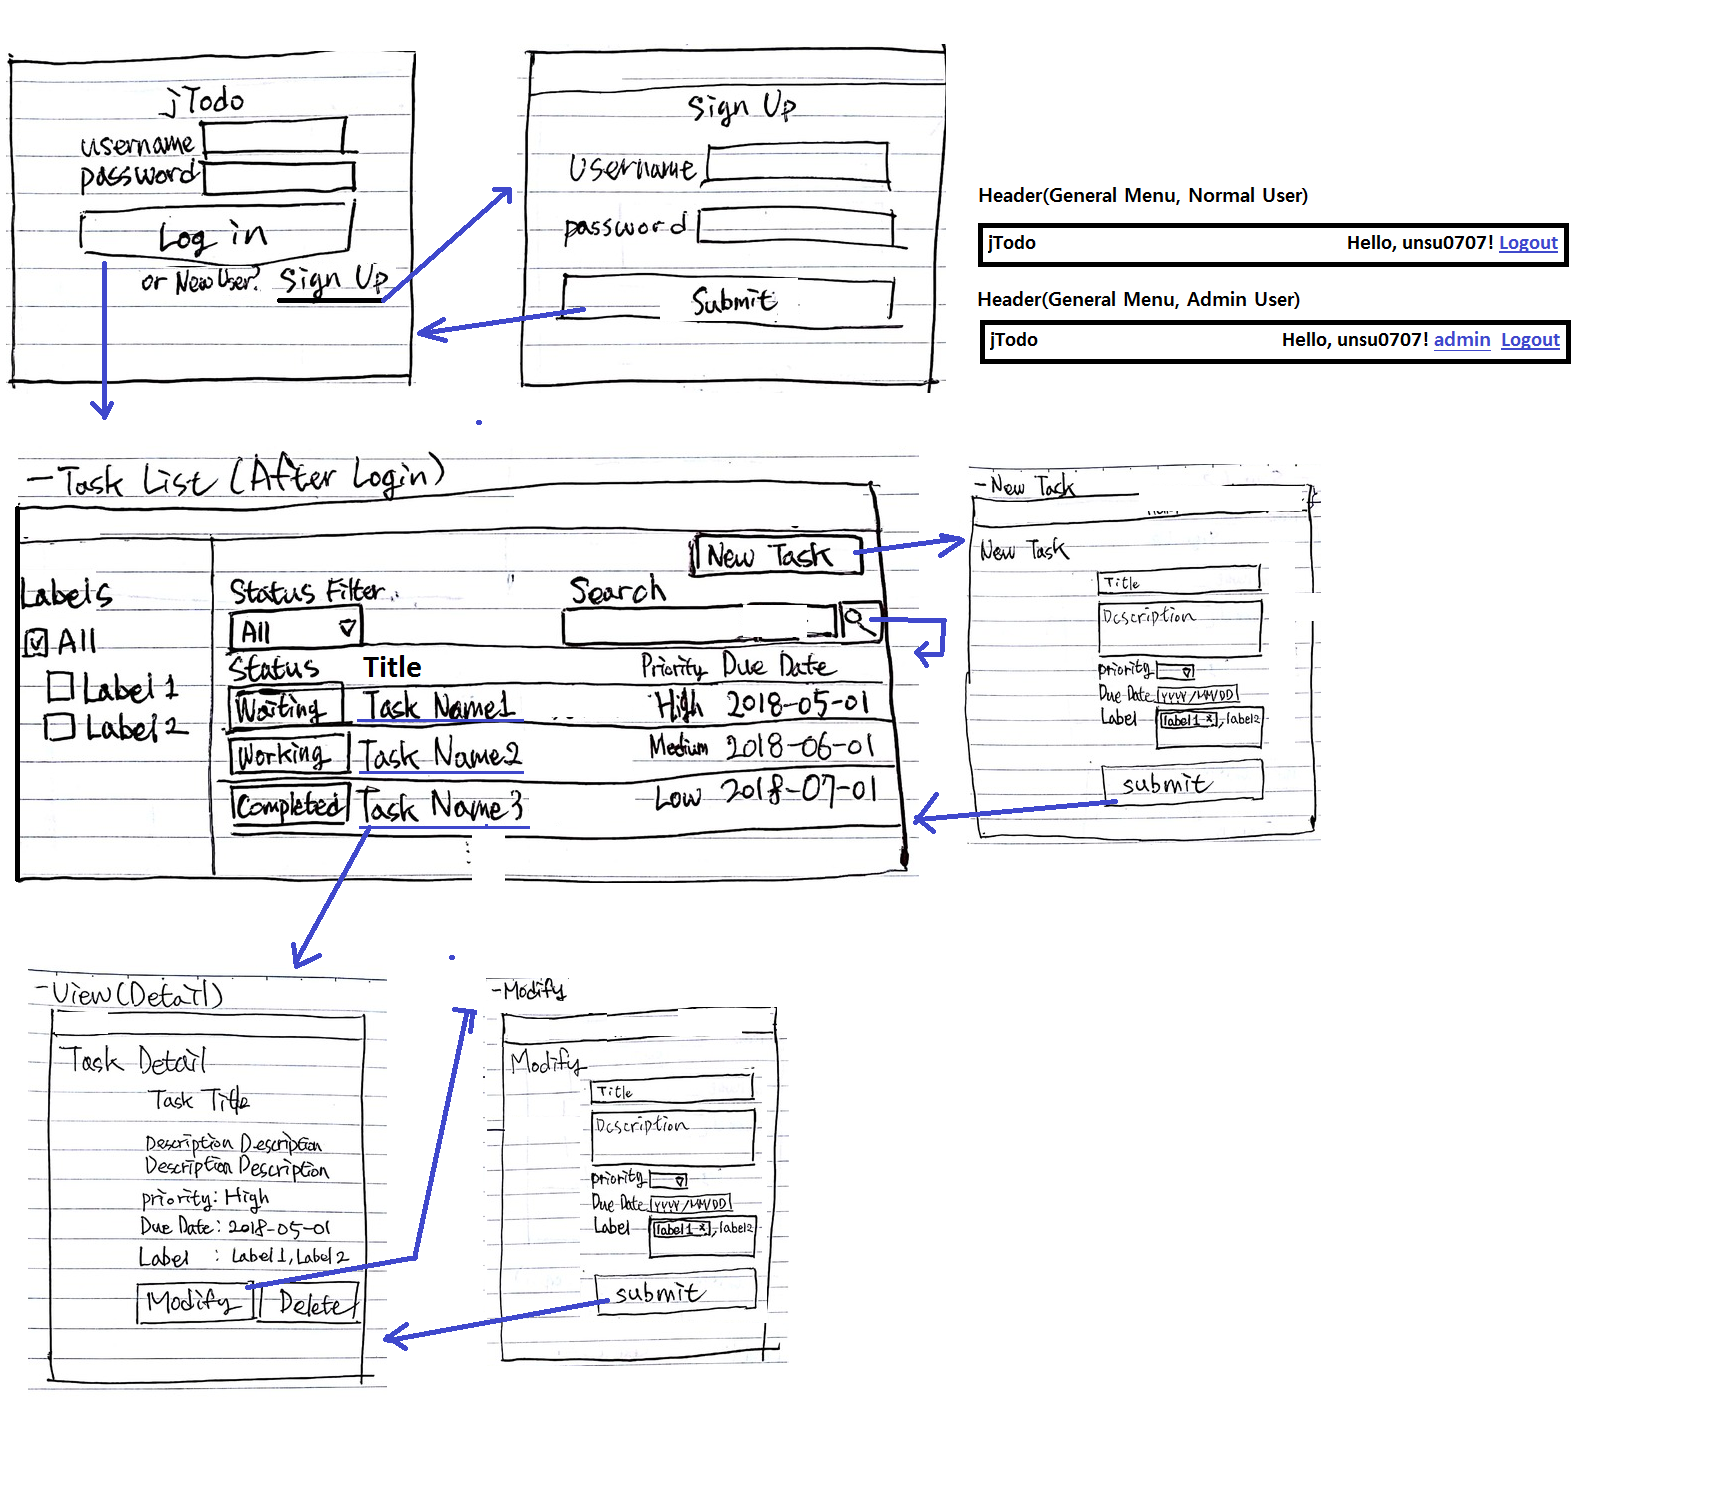 jTodo
username
password
Log in
or New User? Sign Up
Sign Up
Username
password
Submit
Header(General Menu, Normal User)
jTodo Hello, unsu0707! Logout
Header(General Menu, Admin User)
jTodo Hello, unsu0707! admin Logout
-Task List (After Login)
New Task
Labels
All
Label 1
Label 2
Status Filter
Search
All
Status Title Priority Due Date
Waiting Task Name1 High 2018-05-01
Working Task Name2 Medium 2018-06-01
Completed Task Name3 Low 2018-07-01
-New Task
New Task
Title
Description
priority
Due Date YYYY/MM/DD
Label label1 x, label2
submit
-View(Detail)
Task Detail
Task Title
Description Description
Description Description
priority: High
Due Date: 2018-05-01
Label : Label 1, Label 2
Modify Delete
-Modify
Modify
Title
Description
priority
Due Date YYYY/MM/DD
Label label1 x, label2
submit